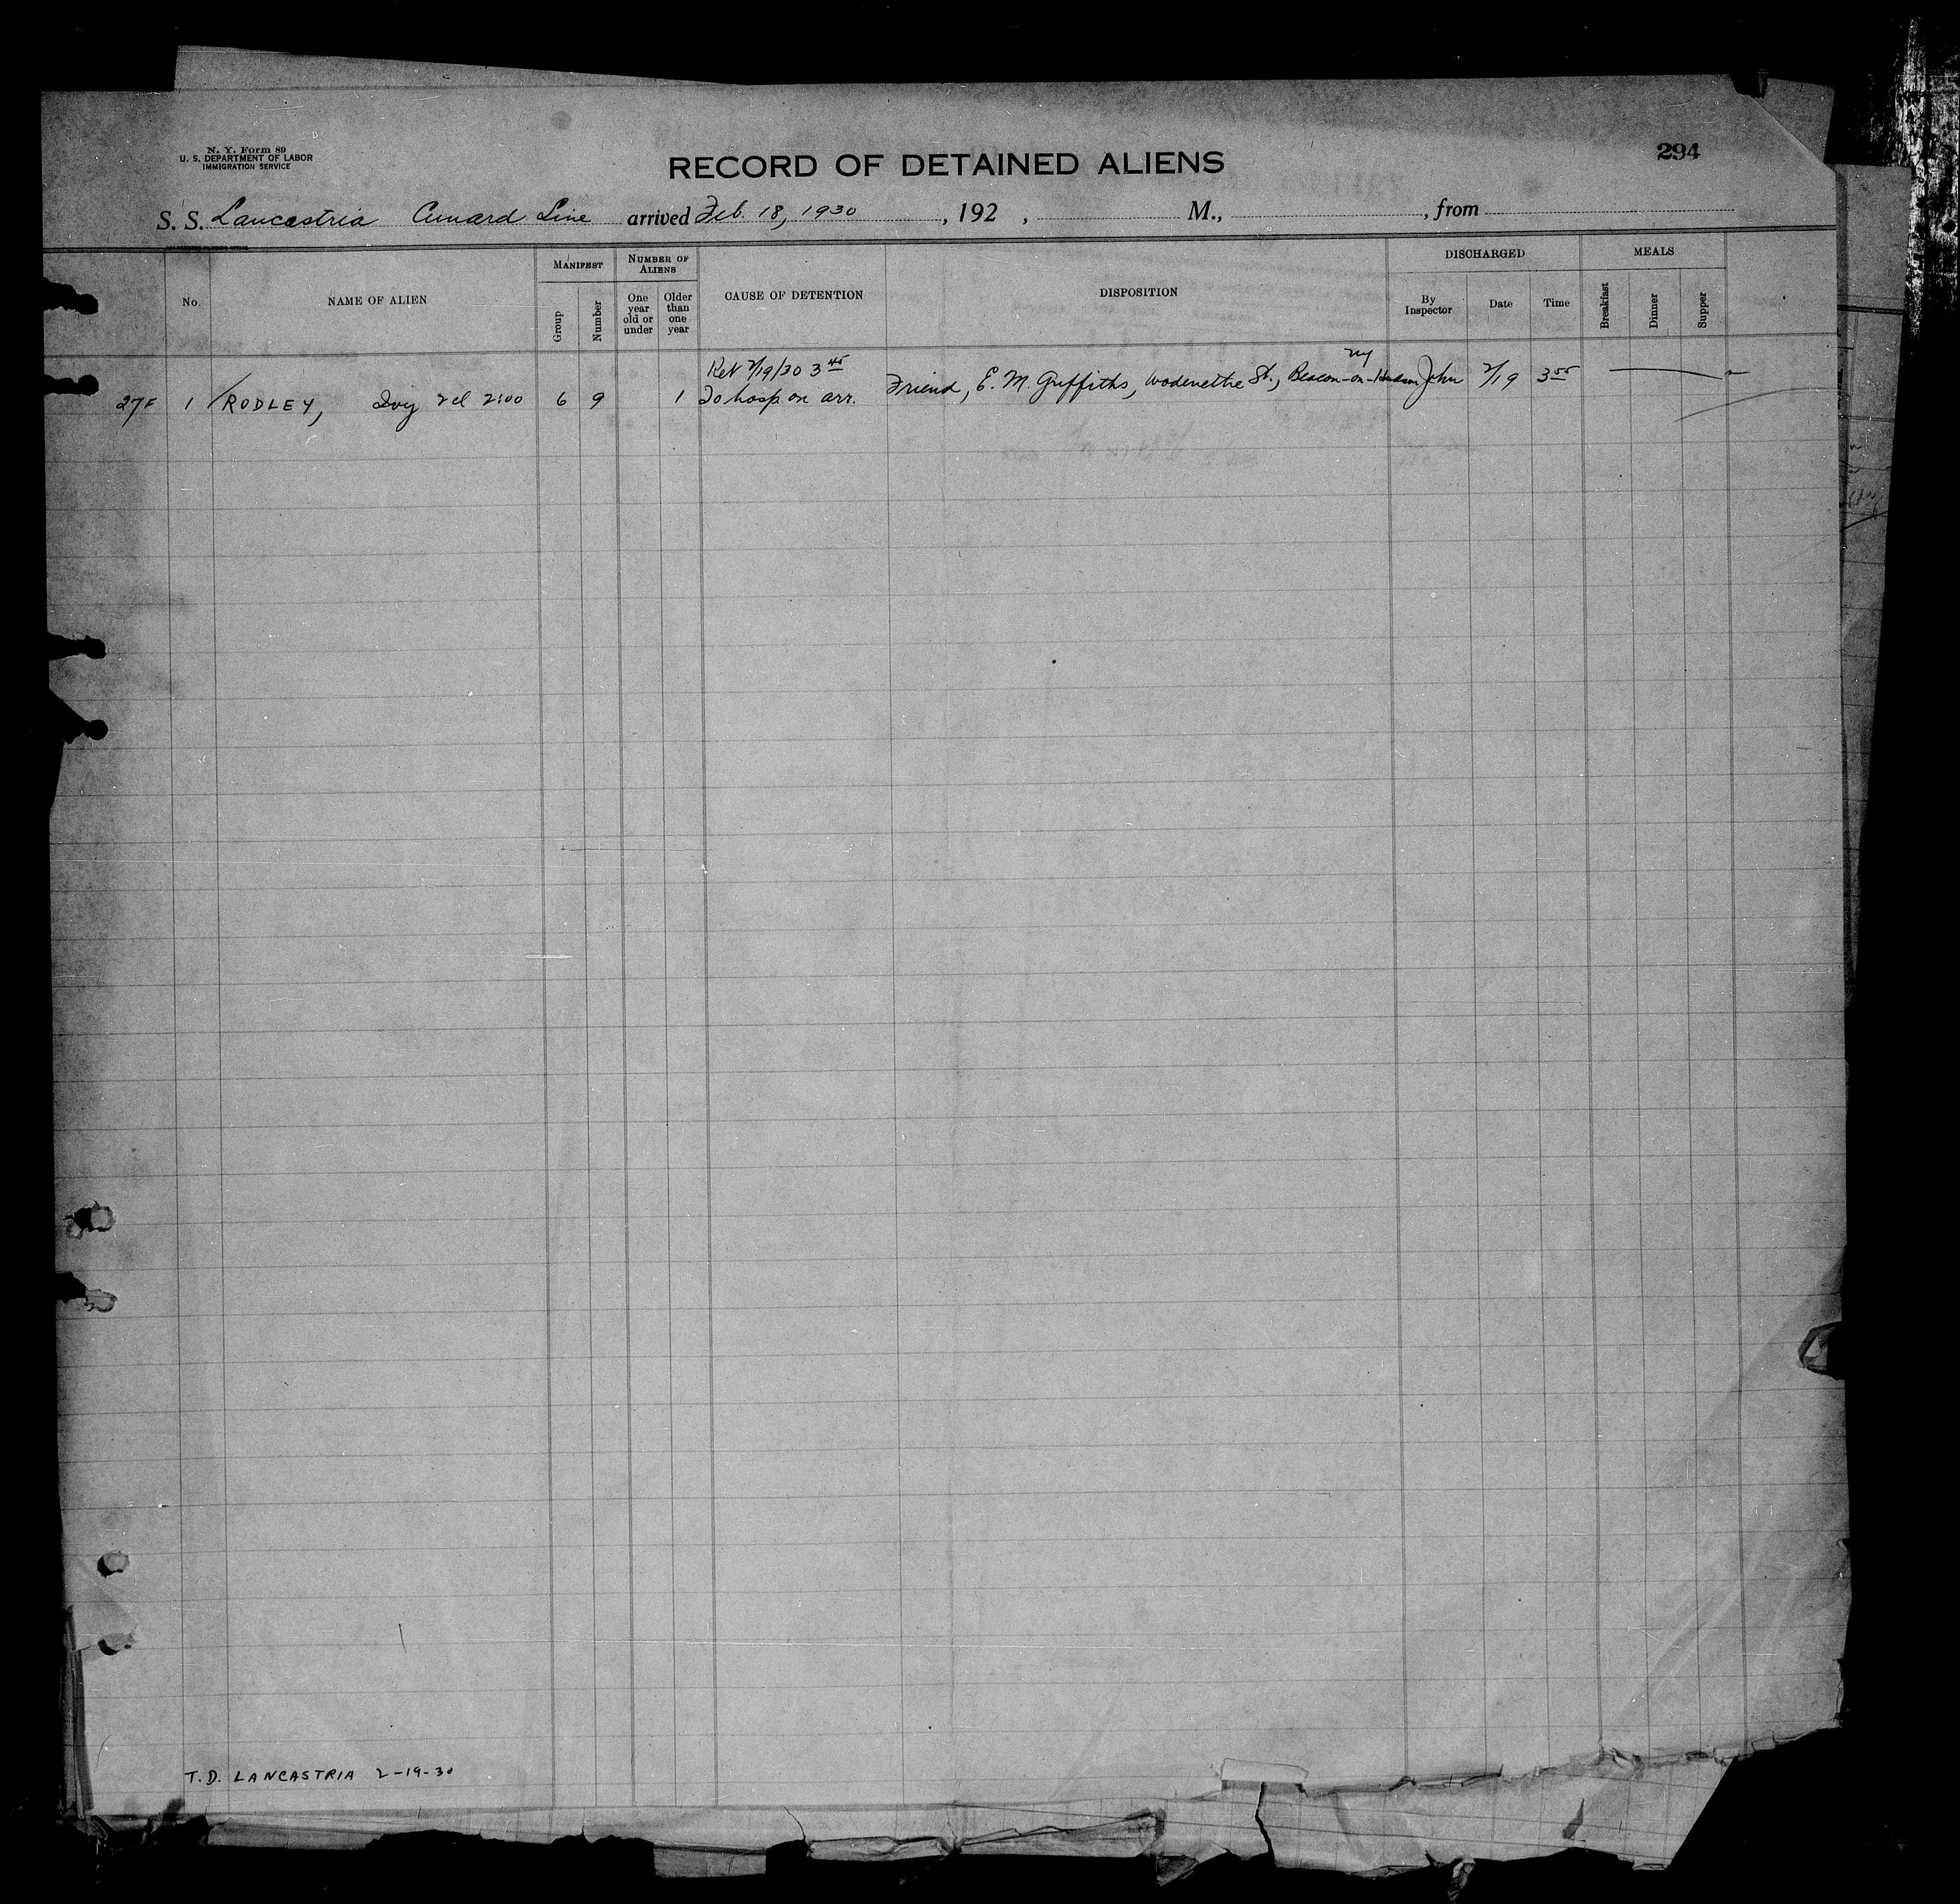 N. Y. Form 89
U. S. DEPARTMENT OF LABOR
IMMIGRATION SERVICE
RECORD OF DETAINED ALIENS
294
S. S. Lancastria Cunard Line arrived Feb. 18, 1930, 192 , M., , from
No.
NAME OF ALIEN
MANIFEST
Group
Number
NUMBER OF ALIENS
One year old or under
Older than one year
CAUSE OF DETENTION
DISPOSITION
DISCHARGED
By Inspector
Date
Time
MEALS
Breakfast
Dinner
Supper
Ret 2/19/30 3 45
27F 1 RODLEY, Ivy 2cl 2100 6 9 1 To hosp. on arr.
Friend, E. M. Griffiths, Wodenethe St., Beacon-on-Hudson NY John 2/19 3 55
T.D. LANCASTRIA 2-19-30